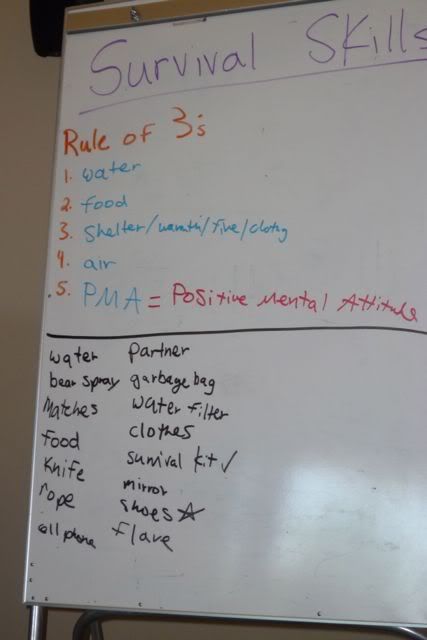 Survival Skills
Rule of 3's
1. water
2. food
3. Shelter/warmth/fire/clothg
4. air
5. PMA = Positive Mental Attitude
water partner
bear spray garbage bag
Matches water filter
Food clothes
Knife survival kit ✓
rope mirror
cell phone shoes ☆
flare